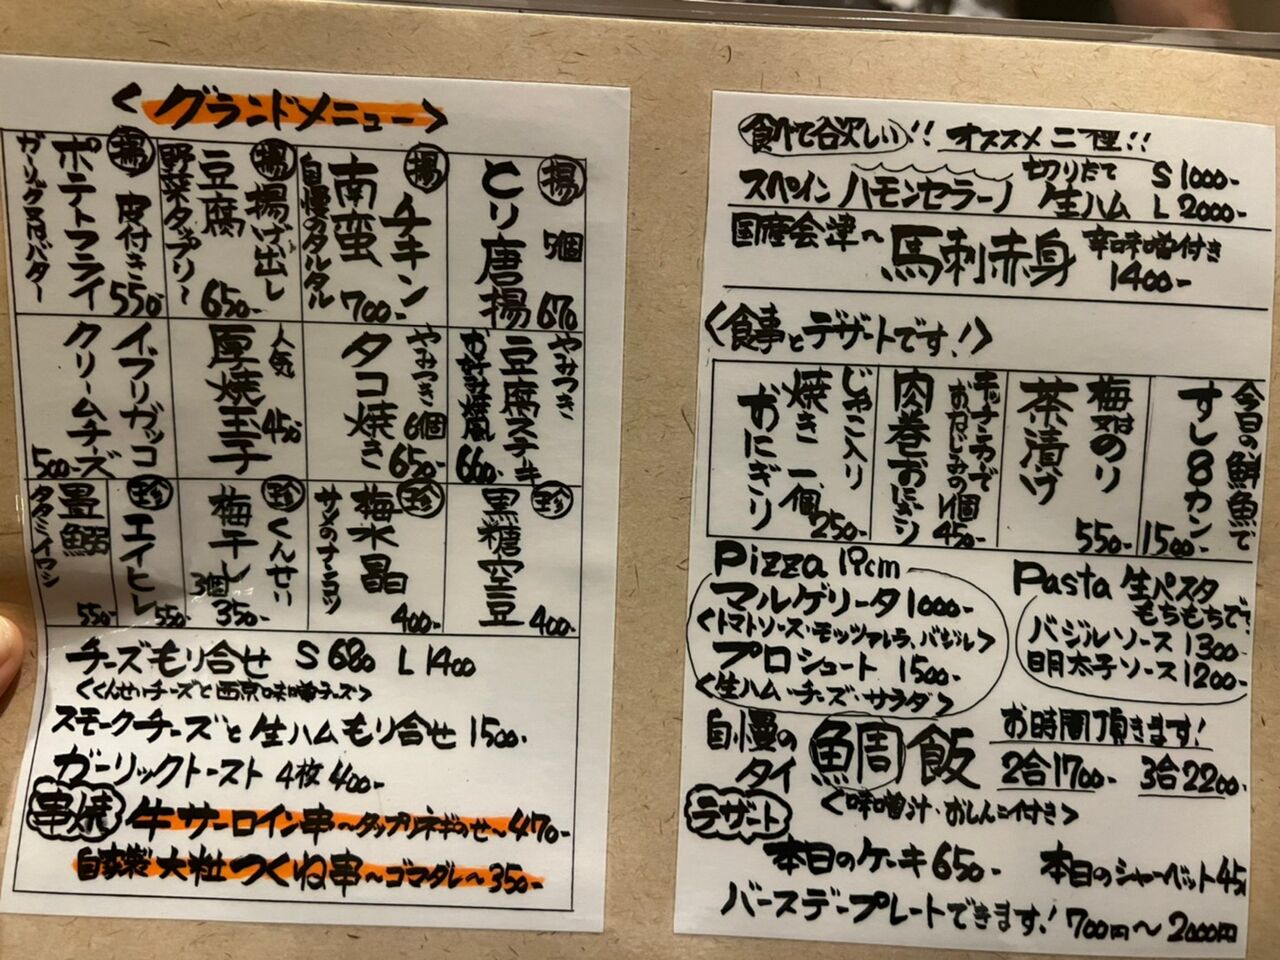 <グランドメニュー>
揚 とり唐揚 5個 670
揚 チキン南蛮 自慢のタルタル 700-
揚 揚げ出し豆腐 野菜タップリ~ 650-
揚 皮付きポテトフライ ガーリック又はバター 550-
やみつき 豆腐ステーキ お好み焼風 660-
やみつき タコ焼き 6個 650-
人気 厚焼玉子 450
イブリガッコクリームチーズ 500-
珍 黒糖空豆 400-
珍 梅水晶 サメのナンコツ 400-
珍 くんせい梅干し 3個 350-
珍 エイヒレ 550-
畳鰯 タタミイワシ 550-
チーズもり合せ S 680 L 1400
<くんせいチーズと西京味噌チーズ>
スモークチーズと生ハムもり合せ 1500-
ガーリックトースト 4枚 400-
串焼 牛サーロイン串~タップリネギのせ~470-
自家製 大粒つくね串~ゴマダレ~350-
食べて欲しい!! オススメ二種!!
スペイン ハモンセラーノ 切りたて 生ハム S 1000- L 2000-
国産会津~ 馬刺赤身 辛味噌付き 1400-
<食事とデザートです!>
今日の鮮魚で すし8カン 1500-
梅又はのり 茶漬け 550-
おなじみの 肉巻おにぎり 1個 450-
じゃこ入り 焼きおにぎり 一個 250-
Pizza 19cm
マルゲリータ 1000-
<トマトソース・モッツァレラ、バジル>
プロシュート 1500-
<生ハム・チーズ・サラダ>
Pasta 生パスタ
もちもちで?
バジルソース 1300-
明太子ソース 1200-
自慢の タイ 鯛飯 お時間頂きます!
2合1700- 3合2200-
<味噌汁・おしんこ付き>
デザート
本日のケーキ 650- 本日のシャーベット 45
バースデープレートできます! 700円~2000円